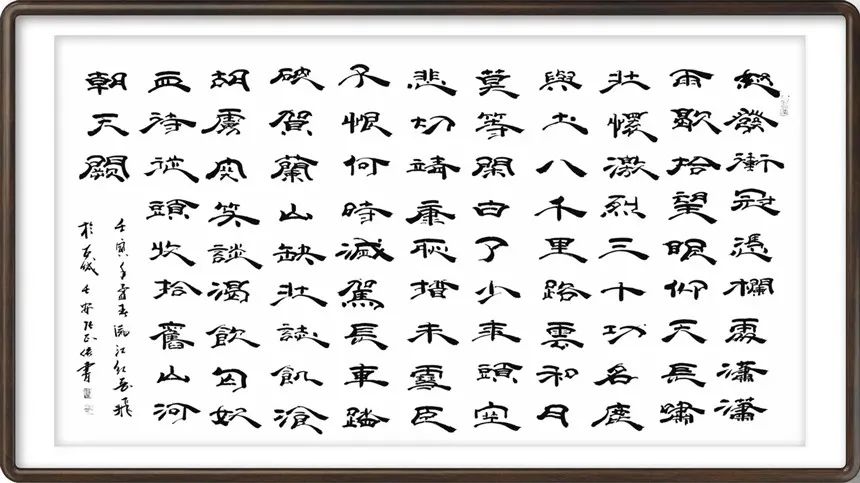 怒發衝冠憑欄處瀟瀟
雨歇抬望眼仰天長嘯
壯懷激烈三十功名塵
與土八千里路雲和月
莫等閑白了少年頭空
悲切靖康恥猶未雪臣
子恨何時滅駕長車踏
破賀蘭山缺壯誌飢湌
胡虜肉笑談渴飲匈奴
血待從頭收拾舊山河
朝天闕
壬寅年春滿江紅岳飛
於書